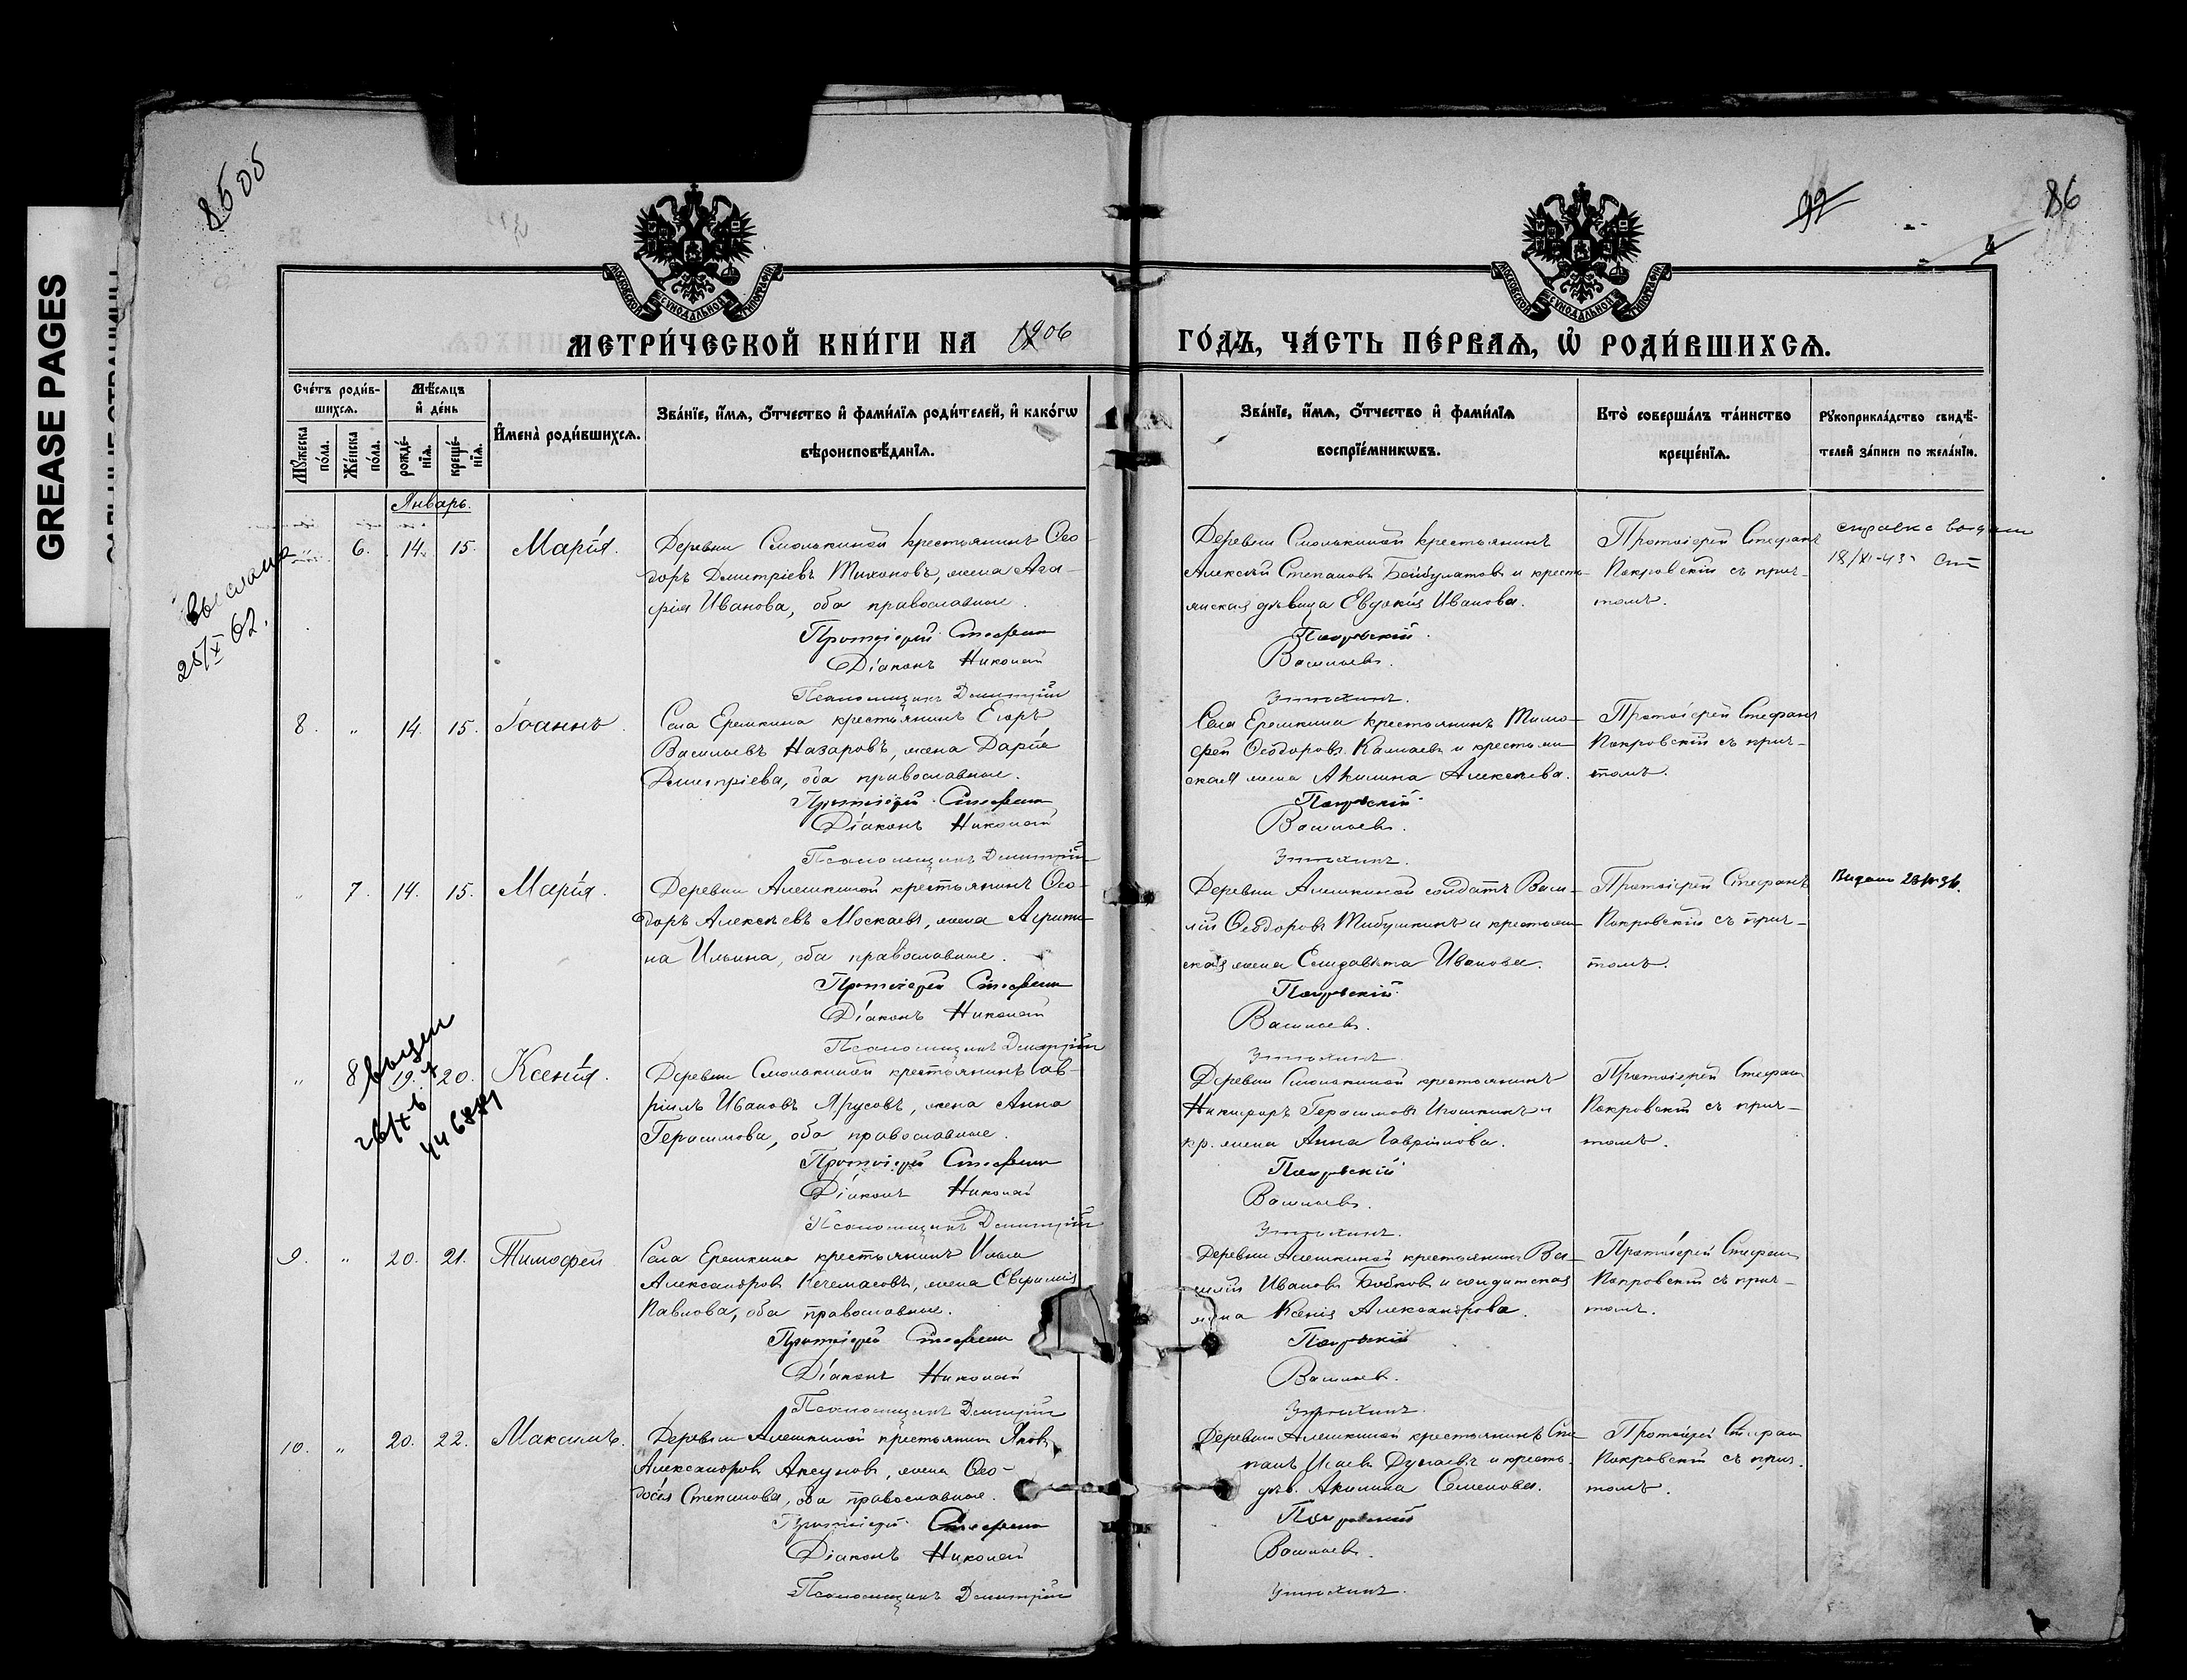 GREASE PAGES
8505
92
86
МОСКОВСКОЙ СѴНОДАЛЬНОЙ ТИПОГРАФІИ
МОСКОВСКОЙ СѴНОДАЛЬНОЙ ТИПОГРАФІИ
МЕТРИ́ЧЕСКОЙ КНИ́ГИ НА 1906 ГО́ДЪ, ЧА́СТЬ ПЕ́РВАѦ, Ѡ҆ РОДИ́ВШИХСѦ.
Сче́тъ роди́в-
шихсѧ.
Мѣ́сѧцъ
и҆ де́нь
Мꙋ́жеска
по́ла.
Же́нска
по́ла.
рожде́-
нїѧ.
креще́-
нїѧ.
И҆мена̀ роди́вшихсѧ.
Зва́нїе, и҆́мѧ, ѻ҆́тчество и҆ фами́лїѧ роди́телей, и҆ како́гѡ
вѣроисповѣ́данїѧ.
Зва́нїе, и҆́мѧ, ѻ҆́тчество и҆ фами́лїѧ
воспрїе́мникѡвъ.
Кто̀ соверша́лъ та́инство
креще́нїѧ.
Рꙋкоприкла́дство свидѣ́-
телей за́писи по жела́нїю.
Январь.
" 6. 14. 15. Марія.
Деревни Смолькиной крестьянинъ Ѳео-
доръ Дмитріевъ Тихоновъ, жена Ага-
фія Иванова, оба православные.
Протоіерей Стефанъ
Діаконъ Николай
Псаломщикъ Димитрій
Деревни Смолькиной крестьянинъ
Алексѣй Степановъ Байбулатовъ и кресть-
янская дѣвица Евдокія Иванова.
Покровскій.
Васильевъ.
Протоіерей Стефанъ
Покровскій съ прич-
томъ.
справка выдана
18/XI-43
выслана
25/X 62.
8. " 14. 15. Іоаннъ.
Села Еремкина крестьянинъ Егоръ
Васильевъ Назаровъ, жена Дарія
Дмитріева, оба православные.
Протоіерей Стефанъ
Діаконъ Николай
Псаломщикъ Димитрій
Села Еремкина крестьянинъ Тимо-
фей Ѳеодоровъ Камаевъ и крестьян-
ская жена Акилина Алексѣева.
Покровскій.
Васильевъ.
Протоіерей Стефанъ
Покровскій съ прич-
томъ.
" 7. 14. 15. Марія.
Деревни Алешкиной крестьянинъ Ѳео-
доръ Алексѣевъ Москаевъ, жена Агрипи-
на Ильина, оба православные.
Протоіерей Стефанъ
Діаконъ Николай
Псаломщикъ Димитрій
Деревни Алешкиной солдатъ Васи-
лій Ѳеодоровъ Тибушкинъ и крестьян-
ская жена Елизавета Иванова.
Покровскій.
Васильевъ.
Протоіерей Стефанъ
Покровскій съ прич-
томъ.
" 8 19. 20. Ксенія.
Деревни Смолькиной крестьянинъ Гав-
ріилъ Ивановъ Ярусовъ, жена Анна
Герасимова, оба православные.
Протоіерей Стефанъ
Діаконъ Николай
Псаломщикъ Димитрій
Деревни Смолькиной крестьянинъ
Никифоръ Герасимовъ Игошкинъ и
кр. жена Анна Гавріилова.
Покровскій
Васильевъ.
Протоіерей Стефанъ
Покровскій съ прич-
томъ.
9. " 20. 21. Тимофей
Села Еремкина крестьянинъ Илья
Александровъ Кечемасовъ, жена Евфимія
Павлова, оба православные.
Протоіерей Стефанъ
Діаконъ Николай
Псаломщикъ Димитрій
Деревни Алешкиной крестьянинъ Ва-
силій Ивановъ Бобковъ и солдатская
жена Ксенія Александрова.
Покровскій
Васильевъ.
Протоіерей Стефанъ
Покровскій съ прич-
томъ.
10. " 20. 22. Максимъ.
Деревни Алешкиной крестьянинъ Яковъ
Александровъ Аксуновъ, жена Ѳео-
досія Степанова, оба православные.
Протоіерей Стефанъ
Діаконъ Николай
Псаломщикъ Димитрій
Деревни Алешкиной крестьянинъ Сте-
панъ Исаевъ Дунаевъ и кресть.
дѣв. Акилина Семенова.
Покровскій
Васильевъ.
Протоіерей Стефанъ
Покровскій съ прич-
томъ.